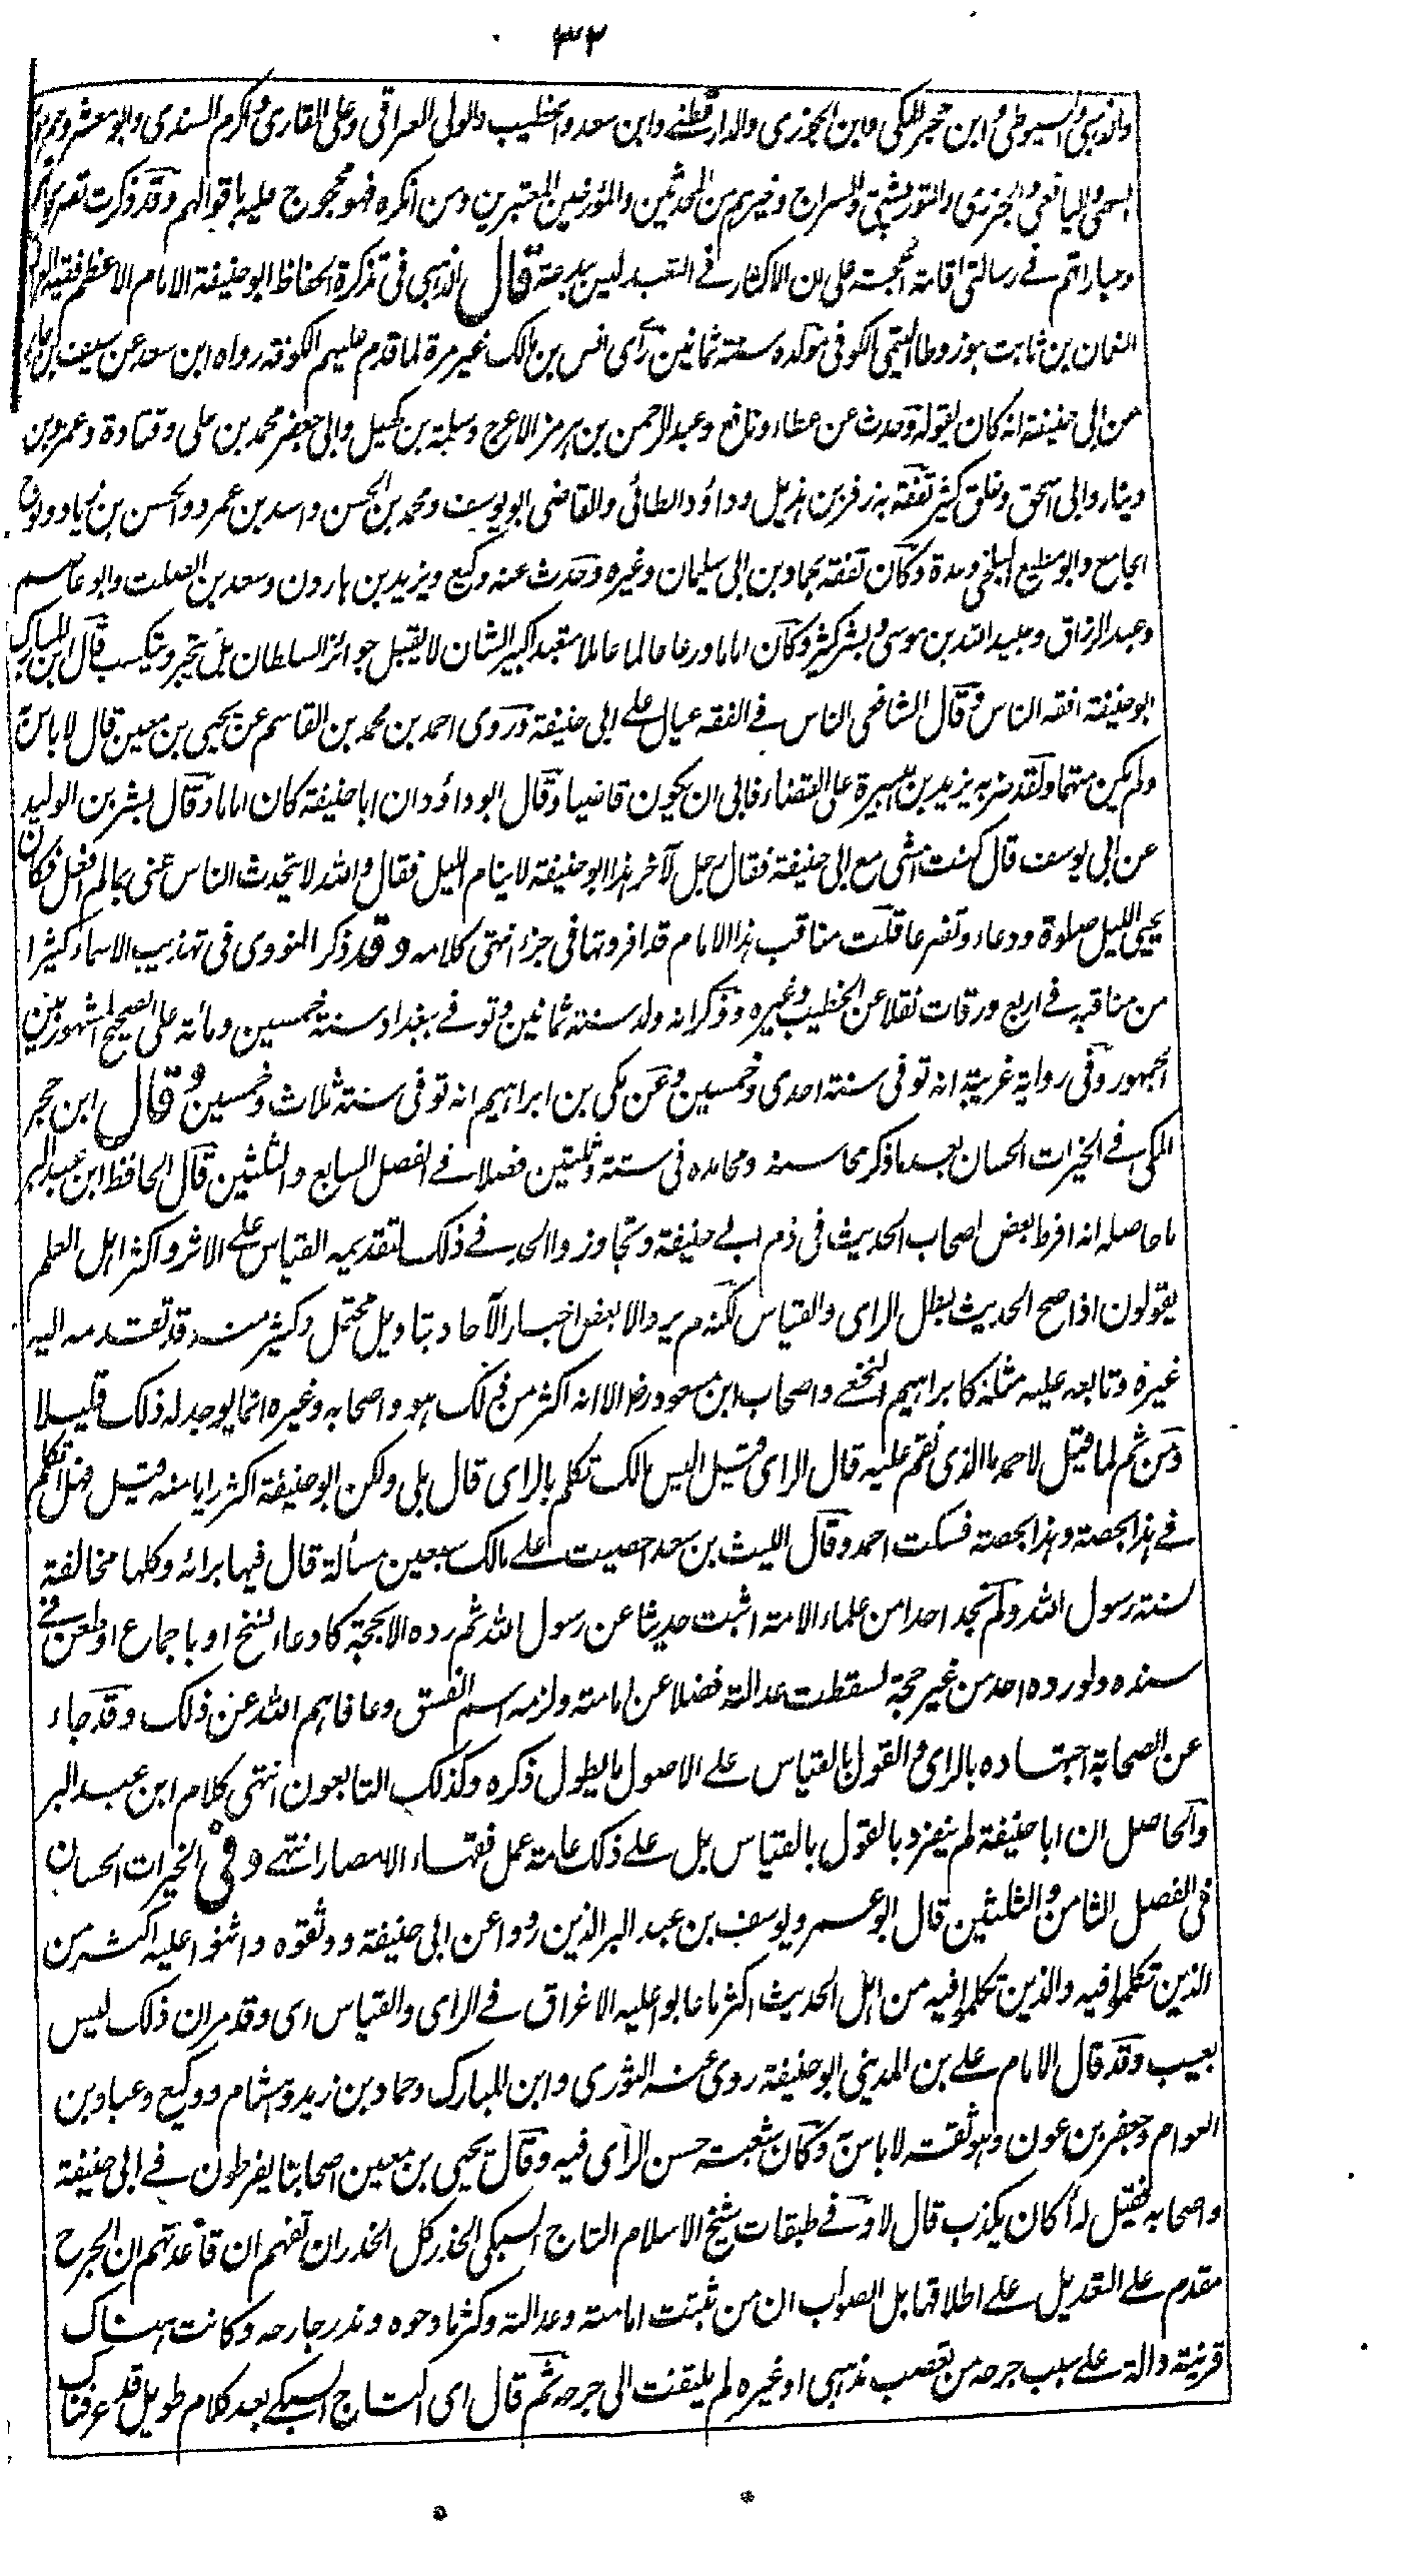 ٣٢
والذهبي والسيوطي وابن حجر المكي وابن الجوزي والدارقطني وابن سعد والخطيب والولي العراقي وعلي القاري واكرم السندي وابو معشر وحمزة
السهمي واليافعي والجزري والتوربشتي والسراج وغيرهم من المحدثين والمؤرخين المعتبرين ومن انكره فهو محجوج عليه باقوالهم وقد ذكرت تصريحاتهم
وعباراتهم في رسالتي اقامة الحجة على ان الاكثار في التعبد ليس ببدعة قال الذهبي في تذكرة الحفاظ ابو حنيفة الامام الاعظم فقيه العراق
النعمان بن ثابت بن زوطا التيمي الكوفي مولده سنة ثمانين رأى انس بن مالك غير مرة لما قدم عليهم الكوفة رواه ابن سعد عن سيف بن جابر
عن ابي حنيفة انه كان يقوله وحدث عن عطاء ونافع وعبد الرحمن بن هرمز الاعرج وسلمة بن كهيل وابي جعفر محمد بن علي وقتادة وعمرو بن
دينار وابي اسحق وخلق كثير تفقه به زفر بن هذيل وداؤد الطائي والقاضي ابو يوسف ومحمد بن الحسن واسد بن عمرو والحسن بن زياد ونوح
الجامع وابو مطيع البلخي وعدة وكان تفقه بحماد بن ابي سليمان وغيره وحدث عنه وكيع ويزيد بن هارون وسعد بن الصلت وابو عاصم
وعبد الرزاق وعبيد الله بن موسى وبشر كثير وكان اماما ورعا عالما عاملا متعبدا كبير الشان لا يقبل جوائز السلطان بل يتجر ويتكسب قال ابن المبارك
ابو حنيفة افقه الناس وقال الشافعي الناس في الفقه عيال على ابي حنيفة وروى احمد بن محمد بن القاسم عن يحيى بن معين قال لا باس به
ولم يكن متهما ولقد ضربه يزيد بن هبيرة على القضاء فابى ان يكون قاضيا وقال ابو داؤد ان ابا حنيفة كان اماما وقال بشر بن الوليد
عن ابي يوسف قال كنت امشي مع ابي حنيفة فقال رجل لآخر هذا ابو حنيفة لا ينام الليل فقال والله لا يتحدث الناس عني بما لم افعل فكان
يحيي الليل صلوة ودعاء وتضرعا قلت مناقب هذا الامام قد افردتها في جزء انتهى كلامه وقد ذكر النووي في تهذيب الاسماء كثيرا
من مناقبه في اربع ورقات نقلا عن الخطيب وغيره وذكر انه ولد سنة ثمانين وتوفي ببغداد سنة خمسين ومائة على الصحيح المشهور بين
الجمهور وفي رواية غريبة انه توفي سنة احدى وخمسين وعن مكي بن ابراهيم انه توفي سنة ثلاث وخمسين وقال ابن حجر
المكي في الخيرات الحسان بعد ما ذكر محاسنه ومحامده في ستة وثلثين فصلا في الفصل السابع والثلثين قال الحافظ ابن عبد البر
ما حاصله انه افرط بعض اصحاب الحديث في ذم ابي حنيفة وتجاوزوا الحد في ذلك لتقديمه القياس على الاثر واكثر اهل العلم
يقولون اذا صح الحديث بطل الراي والقياس لكنه لم يرد الا بعض اخبار الآحاد بتاويل محتمل وكثير منه قد تقدمه اليه
غيره وتابعه عليه مثله كابراهيم النخعي واصحاب ابن مسعود رضـ الا انه اكثر من ذلك هو واصحابه وغيره انما يوجد له ذلك قليلا
ومن ثم لما قيل لاحمد ما الذي نقم عليه قال الراي قيل اليس مالك تكلم بالراي قال بلى ولكن ابو حنيفة اكثر رايا منه قيل فهلا تكلم
في هذا بحصته وهذا بحصته فسكت احمد وقال الليث بن سعد احصيت على مالك سبعين مسألة قال فيها برائه وكلها مخالفة
سنة رسول الله ولم نجد احدا من علماء الامة اثبت حديثا عن رسول الله ثم رده الا بحجة كادعاء النسخ او باجماع او طعن في
سنده ولو رده احد من غير حجة لسقطت عدالته فضلا عن امامته ولزمه اسم الفسق وعافاهم الله عن ذلك وقد جاء
عن الصحابة اجتهاده بالراي والقول بالقياس على الاصول ما يطول ذكره وكذلك التابعون انتهى كلام ابن عبد البر
والحاصل ان ابا حنيفة لم ينفرد بالقول بالقياس بل على ذلك عامة عمل فقهاء الامصار انتهى وفي الخيرات الحسان
في الفصل الثامن والثلثين قال ابو عمر ويوسف بن عبد البر الذين رووا عن ابي حنيفة ووثقوه واثنوا عليه اكثر من
الذين تكلموا فيه والذين تكلموا فيه من اهل الحديث اكثر ما عابوا عليه الاغراق في الراي والقياس اي وقد مر ان ذلك ليس
بعيب وقد قال الامام علي بن المديني ابو حنيفة روى عنه الثوري وابن المبارك وحماد بن زيد وهشام ووكيع وعباد بن
العوام وجعفر بن عون وهو ثقة لا باس به وكان شعبة حسن الراى فيه وقال يحيى بن معين اصحابنا يفرطون في ابي حنيفة
واصحابه فقيل له أكان يكذب قال لا وفي طبقات شيخ الاسلام التاج السبكي الحذر كل الحذر ان تفهم ان قاعدتهم ان الجرح
مقدم على التعديل على اطلاقها بل الصواب ان من ثبتت امامته وعدالته وكثر مادحوه وندر جارحه وكانت هناك
قرينة دالة على سبب جرحه من تعصب مذهبي او غيره لم يلتفت الى جرحه ثم قال اي التاج السبكي بعد كلام طويل قد عرفناك